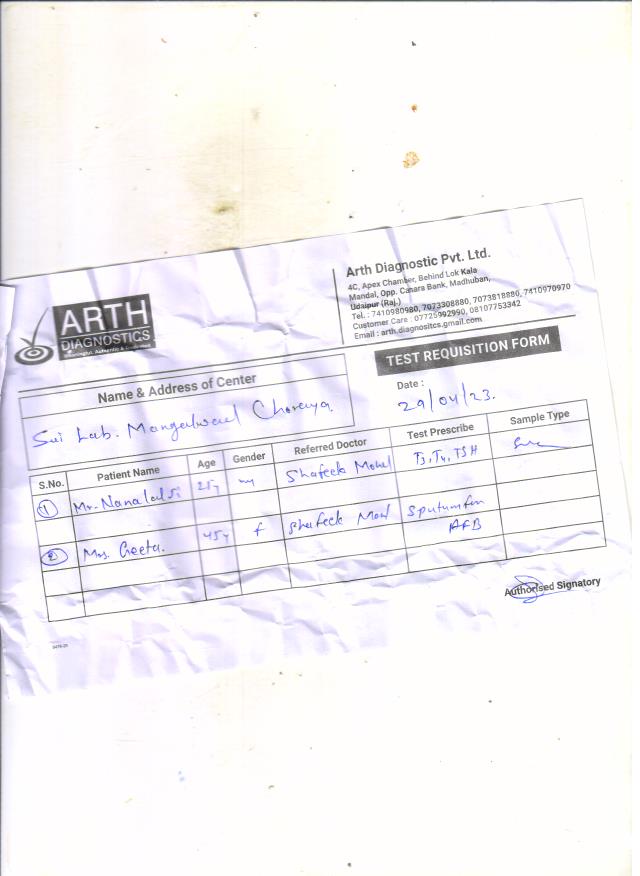 ARTH
DIAGNOSTICS
Arth Diagnostic Pvt. Ltd.
4C, Apex Chamber, Behind Lok Kala
Mandal, Opp. Canara Bank, Madhuban,
Udaipur (Raj.)
Tel. : 7410980980, 7073308880, 7073818880, 7410970970
Customer Care : 07725992990, 08107753342
Email : arth.diagnositcs.gmail.com
TEST REQUISITION FORM
Name & Address of Center
Lab. Mangalwad
Date :
29/04/23.
S.No. Patient Name Age Gender Referred Doctor Test Prescribe Sample Type
1 Mr. Nanalal m Shafeek T3, T4, TSH
2 Mrs. Geeta. 45y f Shafeek Sputum for
AFB
Authorised Signatory